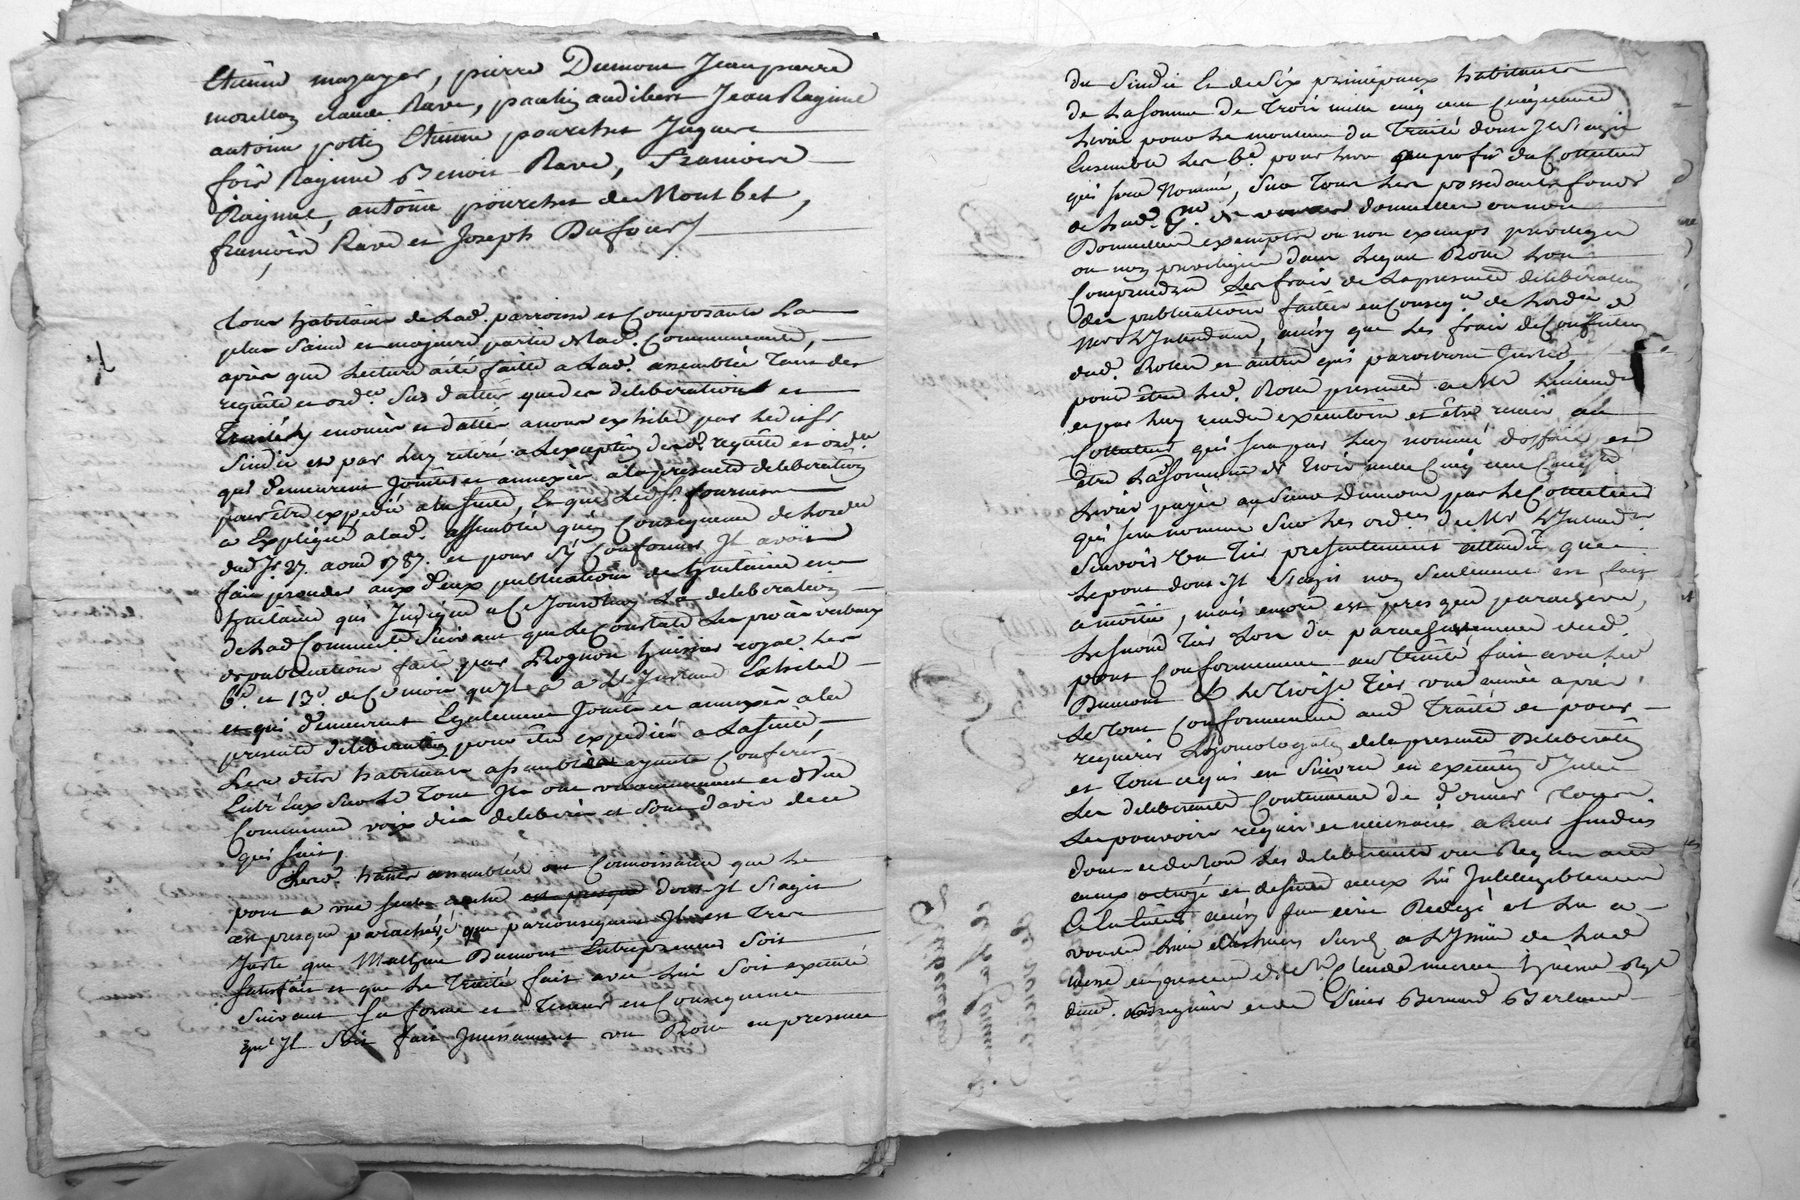 Etienne mazayer, pierre Dumont Jean pierre
morellon claude Rave, paulin audibert Jean Raginel
antoine pottin Etienne pourchet Jaques
fois Raginel Benoit Rave, francois
Raginel, antoine pourchet de Montbet,
francois Rave et Joseph Dufour /
tous habitans de lad. parroisse et Composants La
plus Saine et majeure partie de lad. Communauté,
après que Lecture a été faitte a lad. assemblée tant des
requête et ordce. Sus dattée que des deliberations et
traités y enoncés et dattés a nous exhibé par led. sr
Sindic et par luy retiré a L'exception desd. requête et ordce.
qui demeurent Jointes et annexées a la presente deliberation
pour être expedié a la suite, Et que led. sr fournier
a Expliqué a lad. assemblée qu'en Consequence de L'ordce
dud. Jr. 27. aout 1787. et pour s'y Conformer Jl avoit
fait proceder aux deux publications de huitaine en
huitaine qui Indique a Ce Jourdhuy La deliberation
de lad Commté. Suivant que le Constate Les procès verbaux
de publication fait par Rognon huissier royal Les
6e. et 13e. de Ce mois qu'Jl a a L'Instant Exhibé
et qui demeurent Egalement Jointes et annexées a la
presente deliberation pour être expedié a La suite,
Les dits habitans assemblés ayants Conferé
Entr'Eux Sur Le tout Jls ont unanimement et d'une
Commune voix dit deliberé et Sont d'avis de ce
qui suit,
Lesd. habts assemblés ont Connoissance que le
pont a une seule arche est presque dont Jl s'agit
est presque parachevé, que par consequent Jl est tres
Juste que Mathieu Dumont Entrepreneur Soit
satisfait et que Le traité fait avec Lui Soit executé
suivant Sa forme et teneur en Consequence
qu'Jl Soit fait Incessament un Role en presence
du Sindic Et de Six principaux habitants
de La Somme de trois mille cinq cent Cinquante
Livres pour Le montant du traité dont Jl s'agit
Ensemble Les 6d. pour livre au profit du Collecteur
qui sera Nommé, Sur tous les possedants fonds
de lad. Cté. domicilier ou non
Domicilier exempts ou non exempts privilegiés
ou non privilegiés dans Lequel Role Sera
Compris Les frais de La presente deliberation
des publications faittes en Conseqce. de Lordce. de
Mr L'Intendant, ainsy que Les frais de Confection
dud. Role et autres qui paroitront Justes,
pour être led. Role presenté a Mr L'Intendt
et par luy rendu executoire et être remis au
Collecteur qui sera par Luy nommé d'office, et
être La Somme de trois mille Cinq cent Cinqte.
Livres payée au Sieur Dumont par Le Collecteur
qui sera nommé Sur Les ordces. de Mr L'Intendt.
Sçavoir un tier presentement attendu que
Le pont dont Jl s'agit non Seulement est fait
a moitié, mais encore est presque parachevé,
Le second tier Lors du parachevement dud.
pont Conformement au traité fait avec led
Dumont & Le troise. tier une année après,
Le tout Conformement aud traité de pour
requerir L'homologation de la presente Deliberation
et tout ce qui en Suivra en execution d'Icelle
Les deliberants Continuent de donner tous
Les pouvoirs requis et necessaires a Leur Sindic
dont et du tout Les deliberants ont Requis acte
a eux octroyé et de suitte a eux Lû Intelligiblement
ainsy fait ecrit Redigé et Lu a
a L'Issue de La d
messe en presence de Sr. Claude
dud. et de Didier Bernard Berland